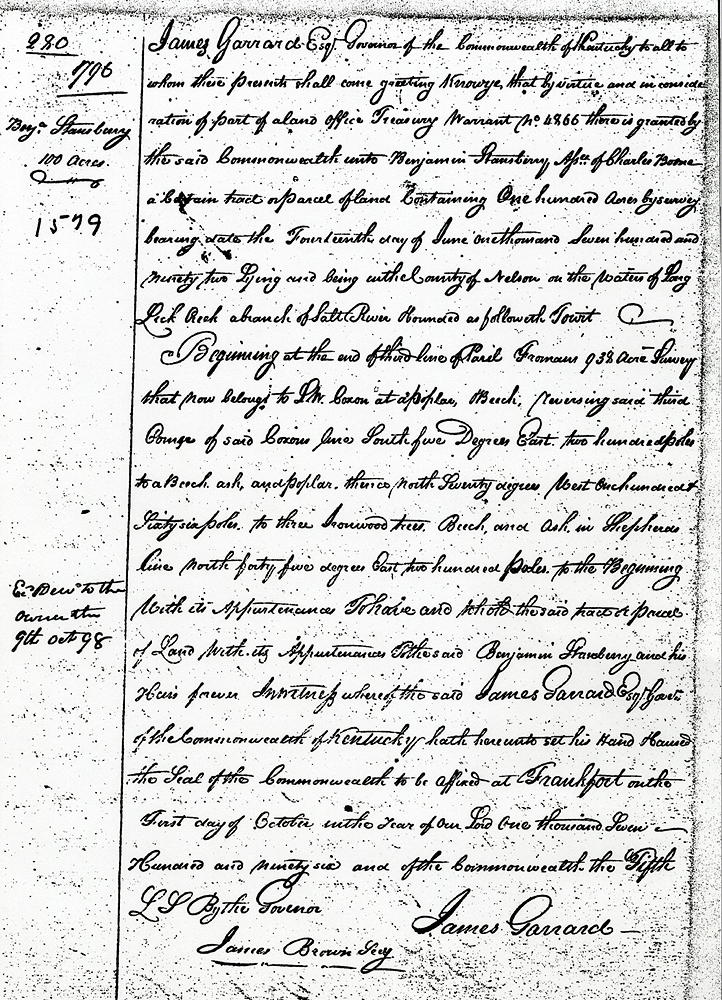 280
796
Benja. Stansberry
100 Acres.
1579
James Garrard Esqr Governor of the Commonwealth of Kentucky to all to
whom these Presents shall come greeting Know ye, that by virtue and in conside
ration of part of a land office Treasury Warrant No. 4866 there is granted by
the said Commonwealth unto Benjamin Stansberry Assee of Charles Boone
a Certain tract or parcel of land Containing One hundred Acres by survey
bearing date the Fourteenth day of June one thousand Seven hundred and
ninety two Lying and being in the County of Nelson on the Waters of Long
Lick Creek a branch of Salt River Bounded as followeth Towit
Beginning at the end of third line of Paul Fromans 938 Acre Survey
that now belongs to Coxon at a poplar, Beech, reversing said third
Course of said Coxons line South five Degrees East two hundred poles
to a Beech ash, and poplar. thence North Seventy degrees West One hundred &
Sixty six poles. to three Ironwood trees. Beech, and Ash. in Shepherds
line North forty five degrees East two hundred poles. to the Beginning
With its Appurtenances To have and to hold the said tract or parcel
of Land With its Appurtenances To the said Benjamin Stansberry and his
Heirs forever In witness whereof the said James Garrard Esqr Govr.
of the Commonwealth of Kentucky hath hereunto set his Hand & Caused
the Seal of the Commonwealth to be affixed at Frankfort on the
First day of October in the Year of Our Lord One thousand Seven
Hundred and ninety six and of the Commonwealth the Fifth
L S By the Govenor
James Garrard
James Brown Secy
Ex. Deld to the
owner the
9th Oct 98